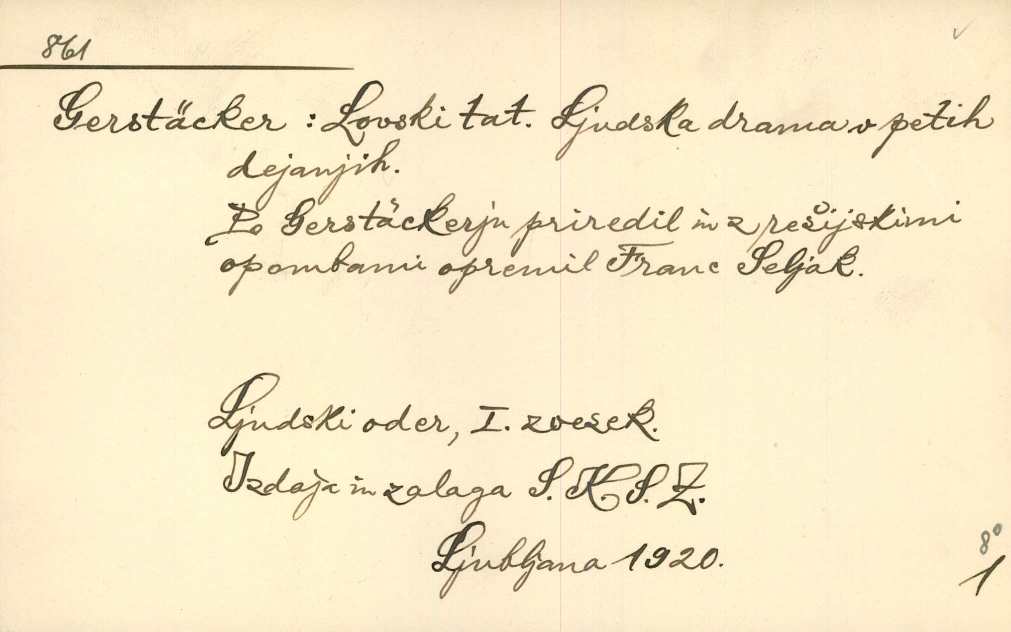 861
Gerstäcker : Lovski tat. Ljudska drama v petih
dejanjih.
Po Gerstäckerju priredil in z rešijskimi
opombami opremil Franc Seljak.
Ljudski oder, I. zvezek.
Izdaja in zalaga S. K. S. Z.
Ljubljana 1920.
8°
1